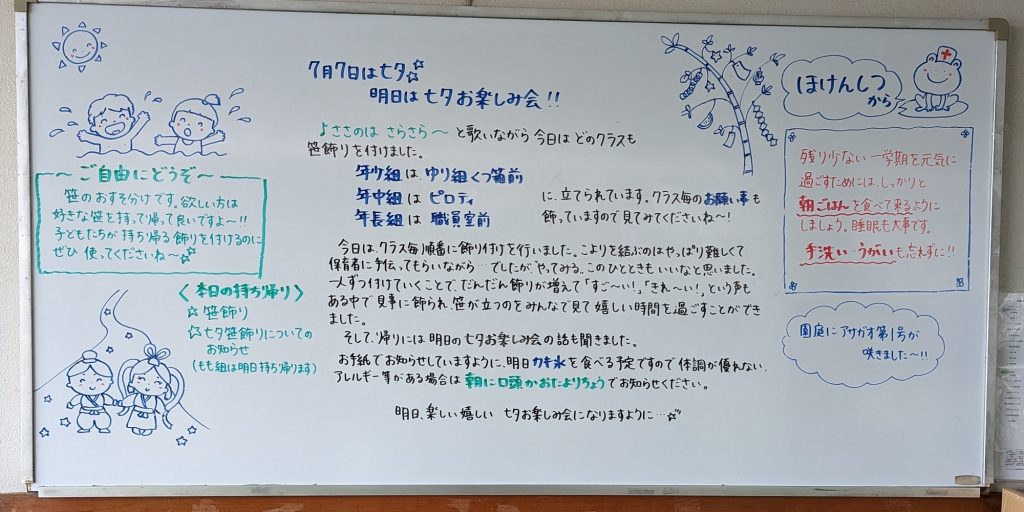 7月7日は七夕☆
明日は七夕お楽しみ会!!
♪ささのは さらさら〜 と歌いながら 今日は どのクラスも
笹飾りを付けました。
年少組は、ゆり組くつ箱前
年中組は ピロティ
年長組は 職員室前
に、立てられています。クラス毎のお願い事も
飾っていますので見てみてくださいね〜!
今日は、クラス毎順番に飾り付けを行いました。こよりを結ぶのはやっぱり難しくて
保育者に手伝ってもらいながら…でしたが、やってみる、このひとときもいいなと思いました。
一人ずつ付けていくことで、だんだん飾りが増えて「すご〜い!」「きれ〜い!」という声も
ある中で見事に飾られ、笹が立つのをみんなで見て嬉しい時間を過ごすことができ
ました。
そして、帰りには明日の七夕お楽しみ会の話も聞きました。
お手紙でお知らせしていますように、明日カキ氷を食べる予定ですので体調が優れない、
アレルギー等がある場合は 朝に口頭かおたよりちょうでお知らせください。
明日、楽しい嬉しい 七夕お楽しみ会になりますように…☆
〜ご自由にどうぞ〜
笹のおすそ分けです。欲しい方は
好きな笹を持って帰って良いですよ〜!!
子どもたちが持ち帰る飾りを付けるのに
ぜひ 使ってくださいね〜☆
〈本日の持ち帰り〉
☆笹飾り
☆七夕笹飾りについての
お知らせ
(もも組は明日持ち帰ります)
ほけんしつ
から
残り少ない 一学期を元気に
過ごすためには、しっかりと
朝ごはんを食べて来るように
しましょう。睡眠も大事です。
手洗い・うがいも忘れずに!!
園庭に アサガオ第1号が
咲きました〜!!